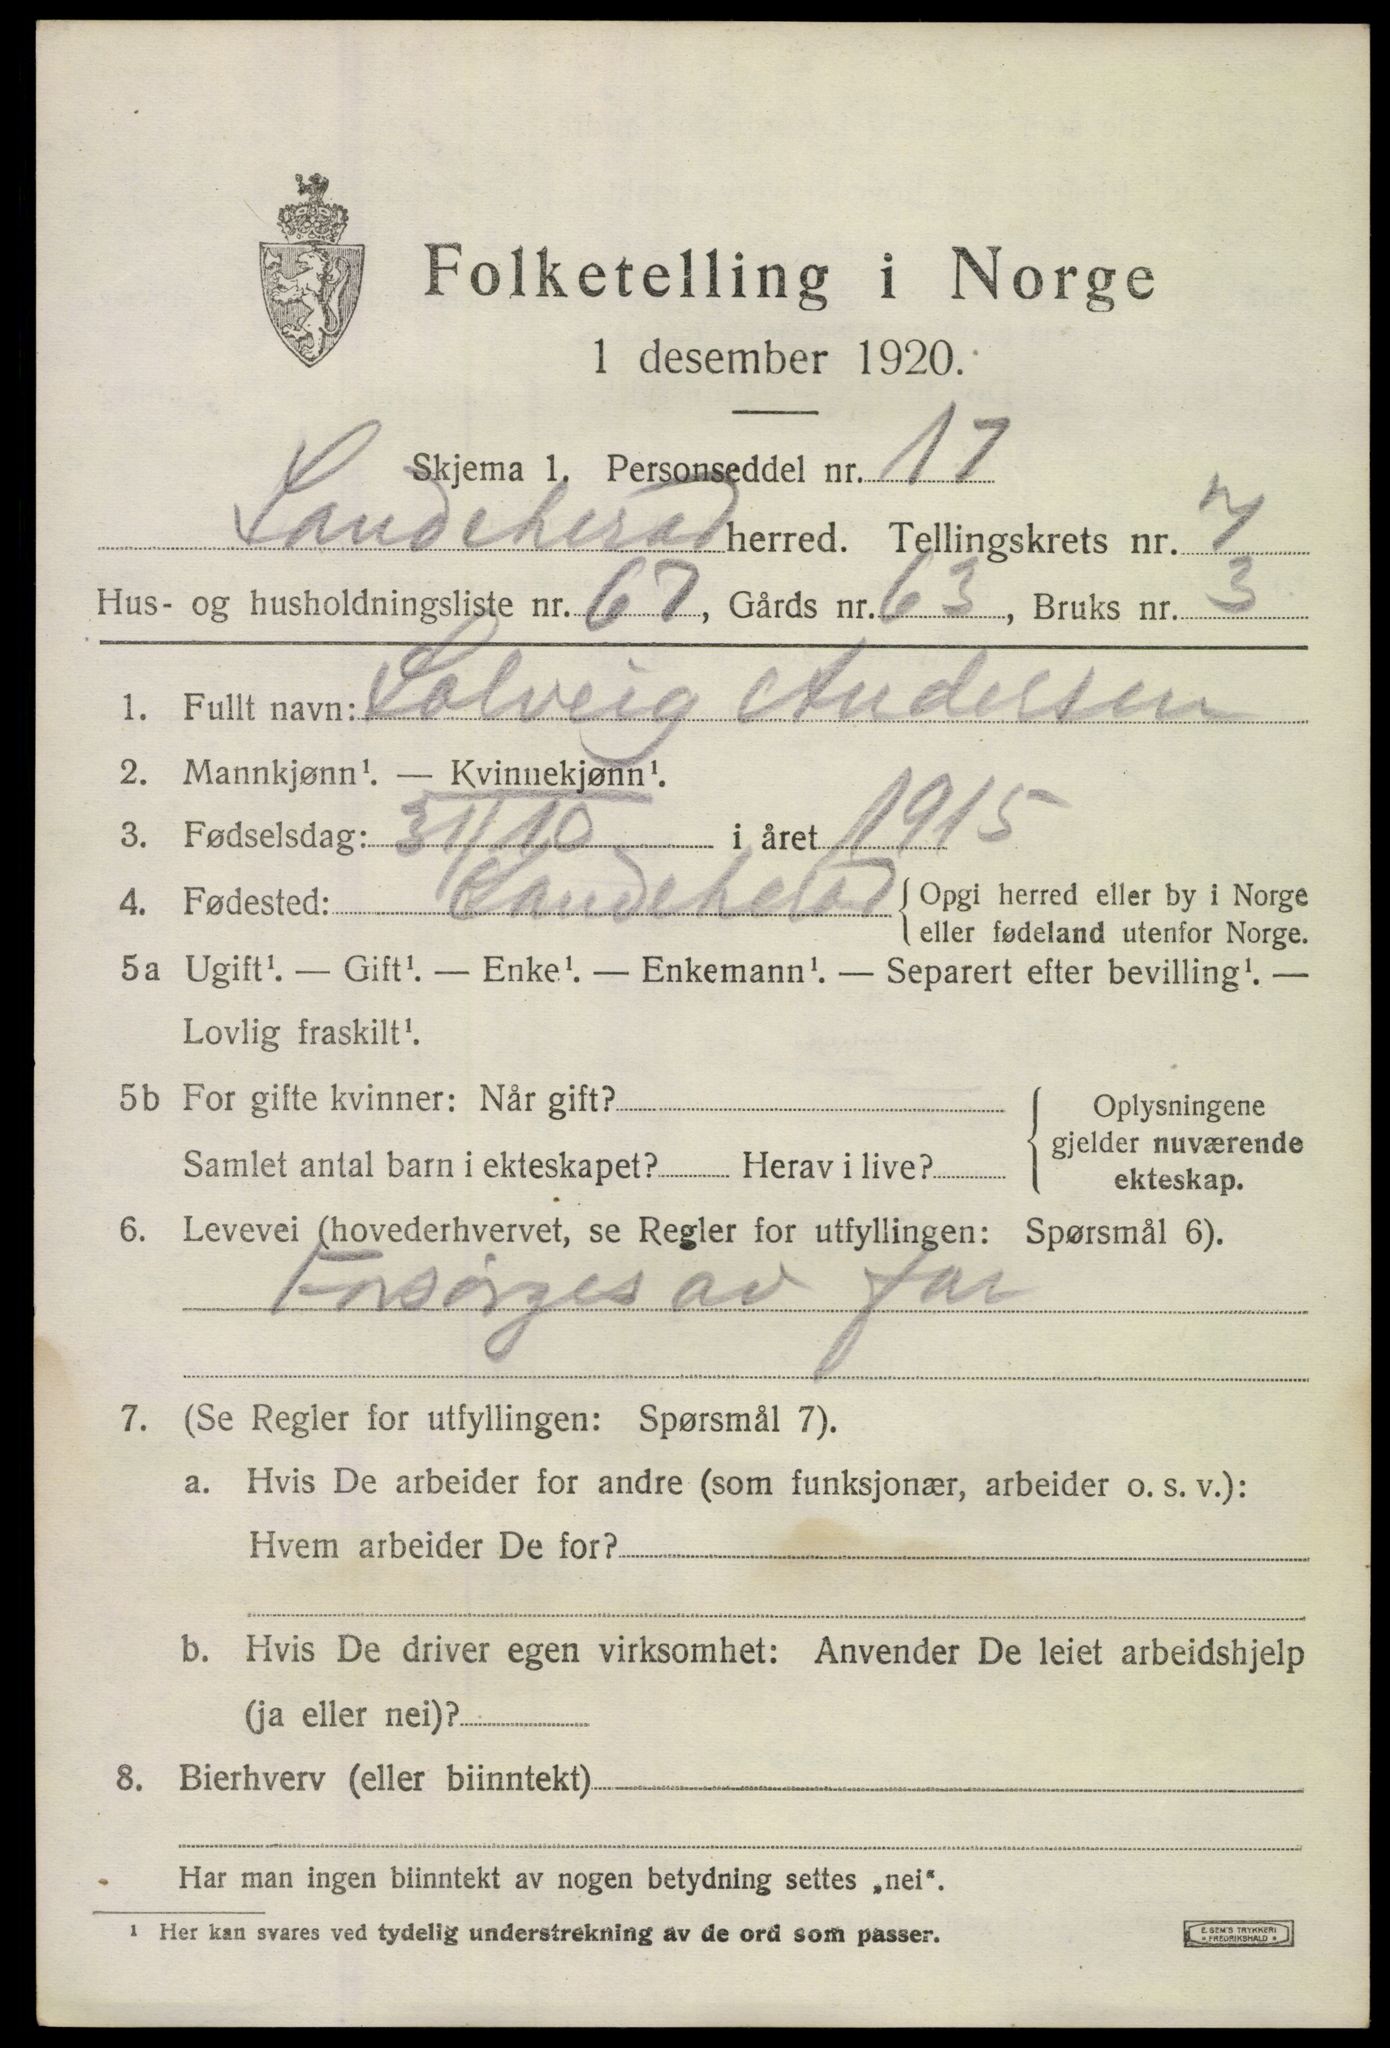 Folketelling i Norge
1 desember 1920.
Skjema 1. Personseddel nr. 17
Sandeherad herred. Tellingskrets nr. 7
Hus- og husholdningsliste nr. 67, Gårds nr. 63, Bruks nr. 3
1. Fullt navn: Solveig Andersen
2. Mannkjønn¹. — Kvinnekjønn¹.
3. Fødselsdag: 31/10 i året 1915
4. Fødested: Sandeherad { Opgi herred eller by i Norge
eller fødeland utenfor Norge.
5a Ugift¹. — Gift¹. — Enke¹. — Enkemann¹. — Separert efter bevilling¹. —
Lovlig fraskilt¹.
5b For gifte kvinner: Når gift?
Samlet antal barn i ekteskapet? Herav i live?
Oplysningene
gjelder nuværende
ekteskap.
6. Levevei (hovederhvervet, se Regler for utfyllingen: Spørsmål 6).
Forsørges av far
7. (Se Regler for utfyllingen: Spørsmål 7).
a. Hvis De arbeider for andre (som funksjonær, arbeider o. s. v.):
Hvem arbeider De for?
b. Hvis De driver egen virksomhet: Anvender De leiet arbeidshjelp
(ja eller nei)?
8. Bierhverv (eller biinntekt)
Har man ingen biinntekt av nogen betydning settes „nei“.
¹ Her kan svares ved tydelig understrekning av de ord som passer.
E. SEM'S TRYKKERI
* FREDRIKSHALD *